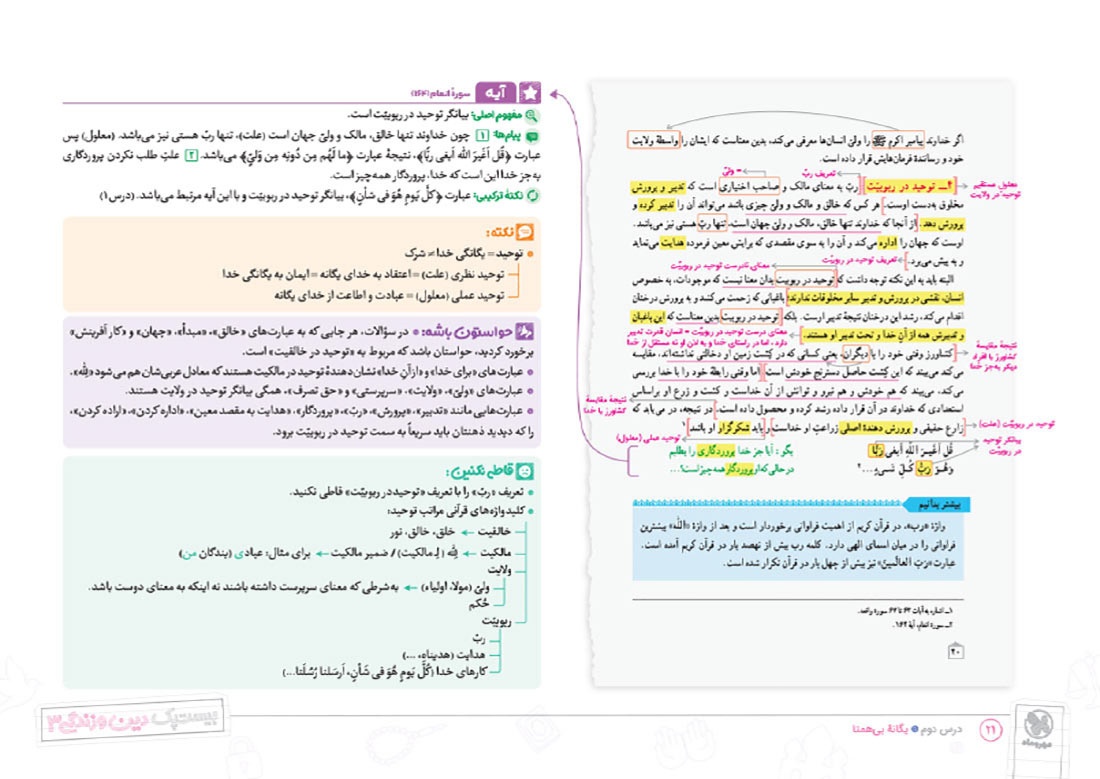 اگر خداوند پیامبر اکرم ﷺ را ولیّ انسان‌ها معرفی می‌کند، بدین معناست که ایشان را واسطهٔ ولایت
خود و رسانندهٔ فرمان‌هایش قرار داده است.
معلول مستقیم توحید در ولایت
تعریف ربّ
= ولیّ
۴ـ توحید در ربوبیّت: ربّ به معنای مالک و صاحب اختیاری است که تدبیر و پرورش
مخلوق به‌دست اوست. هر کس که خالق و مالک و ولیّ چیزی باشد می‌تواند آن را تدبیر کرده و
پرورش دهد. از آنجا که خداوند تنها خالق، مالک و ولیّ جهان است، تنها ربّ هستی نیز می‌باشد.
اوست که جهان را اداره می‌کند و آن را به سوی مقصدی که برایش معین فرموده هدایت می‌نماید
و به پیش می‌برد.
تعریف توحید در ربوبیّت
معنای نادرست توحید در ربوبیّت
البته باید به این نکته توجه داشت که توحید در ربوبیت بدان معنا نیست که موجودات، به خصوص
انسان، نقشی در پرورش و تدبیر سایر مخلوقات ندارند؛ باغبانی که زحمت می‌کشد و به پرورش درختان
اقدام می‌کند، رشد این درختان نتیجهٔ تدبیر است. بلکه توحید در ربوبیت بدین معناست که این باغبان
و تدبیرش همه از آنِ خدا و تحت تدبیر او هستند.
معنای درست توحید در ربوبیّت = انسان قدرت تدبیر
دارد، اما در راستای خدا و به اذن او نه مستقل از خدا
نتیجهٔ مقایسهٔ کشاورز با افراد دیگر به‌جز خدا
کشاورز وقتی خود را با دیگران، یعنی کسانی که در کِشت زمین او دخالتی نداشته‌اند، مقایسه
می‌کند می‌بیند که این کِشت حاصل دسترنج خودش است. اما وقتی رابطهٔ خود را با خدا بررسی
می‌کند، می‌بیند که هم خودش و هم نیرو و توانش از آن خداست و کشت و زرع او براساس
استعدادی که خداوند در آن قرار داده رشد کرده و محصول داده است. در نتیجه، در می‌یابد که
زارع حقیقی و پرورش دهندهٔ اصلی زراعتِ او خداست و باید شکرگزار او باشد.۱
نتیجهٔ مقایسهٔ کشاورز با خدا
توحید در ربوبیّت (علت)
توحید عملی (معلول)
بیانگر توحید در ربوبیّت
قُل اَغَیرَ اللّٰهِ اَبغی رَبًّا بگو: آیا جز خدا پروردگاری را بطلبم
وَهُوَ رَبُّ کُلِّ شَیءٍ ...۲ در حالی‌که او پروردگار همه چیز است؟...
بیشتر بدانیم
واژهٔ «رب»، در قرآن کریم از اهمیت فراوانی برخوردار است و بعد از واژهٔ «اللّٰه» بیشترین
فراوانی را در میان اسمای الهی دارد. کلمه رب بیش از نهصد بار در قرآن کریم آمده است.
عبارت «رَبّ العالَمین» نیز بیش از چهل بار در قرآن تکرار شده است.
۱ـ اشاره به آیات ۶۳ تا ۶۴ سورهٔ واقعه.
۲ـ سورهٔ انعام، آیهٔ ۱۶۴.
۲۰
آیه سورهٔ انعام (۱۶۴)
مفهوم اصلی: بیانگر توحید در ربوبیّت است.
پیام‌ها: ۱ چون خداوند تنها خالق، مالک و ولیّ جهان است (علت)، تنها ربّ هستی نیز می‌باشد. (معلول) پس
عبارت ﴿قُل اَغَیرَ اللّه اَبغی ربًّا﴾، نتیجهٔ عبارت ﴿ما لَهُم مِن دُونِه مِن وَلیّ﴾ می‌باشد. ۲ علتِ طلب نکردن پروردگاری
به‌جز خدا این است که خدا، پروردگار همه‌چیز است.
نکتهٔ ترکیبی: عبارت ﴿کُلَّ یَومٍ هُوَ فی شَأنٍ﴾، بیانگر توحید در ربوبیّت و با این آیه مرتبط می‌باشد. (درس۱)
نکته:
توحید = یگانگی خدا ≠ شرک
توحید نظری (علت) = اعتقاد به خدای یگانه = ایمان به یگانگی خدا
توحید عملی (معلول) = عبادت و اطاعت از خدای یگانه
حواستون باشه: در سؤالات، هر جایی که به عبارت‌های «خالق»، «مبدأ»، «جهان» و «کار آفرینش»
برخورد کردید، حواستان باشد که مربوط به «توحید در خالقیت» است.
عبارت های «برای خدا» و «از آنِ خدا» نشان‌دهندهٔ توحید در مالکیت هستند که معادل عربی‌شان هم می‌شود «لِلّٰه».
عبارت‌های «ولیّ»، «ولایت»، «سرپرستی» و «حق تصرف»، همگی بیانگر توحید در ولایت هستند.
عبارت‌هایی مانند «تدبیر»، «پرورش»، «ربّ»، «پروردگار»، «هدایت به مقصد معین»، «اداره کردن»، «اراده کردن»،
را که دیدید ذهنتان باید سریعاً به سمت توحید در ربوبیت برود.
قاطی نکنین:
تعریف «ربّ» را با تعریف «توحید در ربوبیّت» قاطی نکنید.
کلیدواژه‌های قرآنی مراتب توحید:
خالقیت ← خلق، خالق، نور
مالکیت ← لِلّٰه (لِـ مالکیت) / ضمیر مالکیت ← برای مثال: عبادی (بندگان من)
ولایت
ولیّ (مولا، اولیاء) ← به‌شرطی که معنای سرپرست داشته باشند نه اینکه به معنای دوست باشد.
حُکم
ربوبیّت
ربّ
هدایت (هدیناهِ، ...)
کارهای خدا (کُلَّ یَومٍ هُوَ فی شَأنٍ، اَرسَلنا رُسُلَنا...)
مهروماه
۲۱ درس دوم یگانهٔ بی‌همتا
بیست‌پک دین و زندگی۳